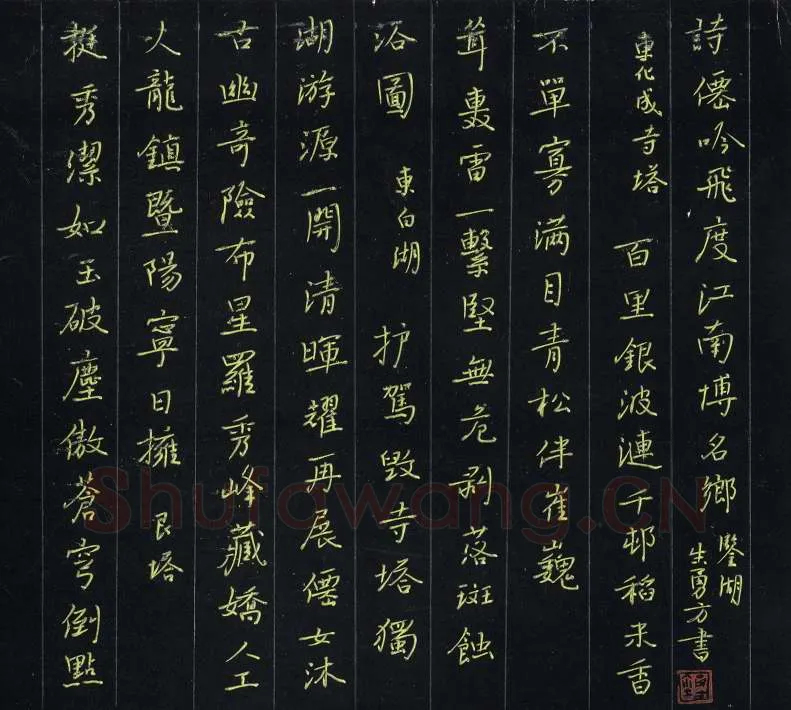 挺秀潔如玉破塵傲蒼穹倒點
火龍鎮暨陽寧日擁 艮塔
古幽奇險布星羅秀峰藏嬌人工
湖游源一開清暉耀再展僊女沐
浴圖 東白湖 护駕毀寺塔獨
聳轟雷一繫堅無危剥落斑蝕
不單寡满目青松伴崔巍
東化成寺塔 百里銀波漣千邨稻米香
詩僊吟飛度江南博名鄉 鑒湖
朱勇方書
Shufawang.CN